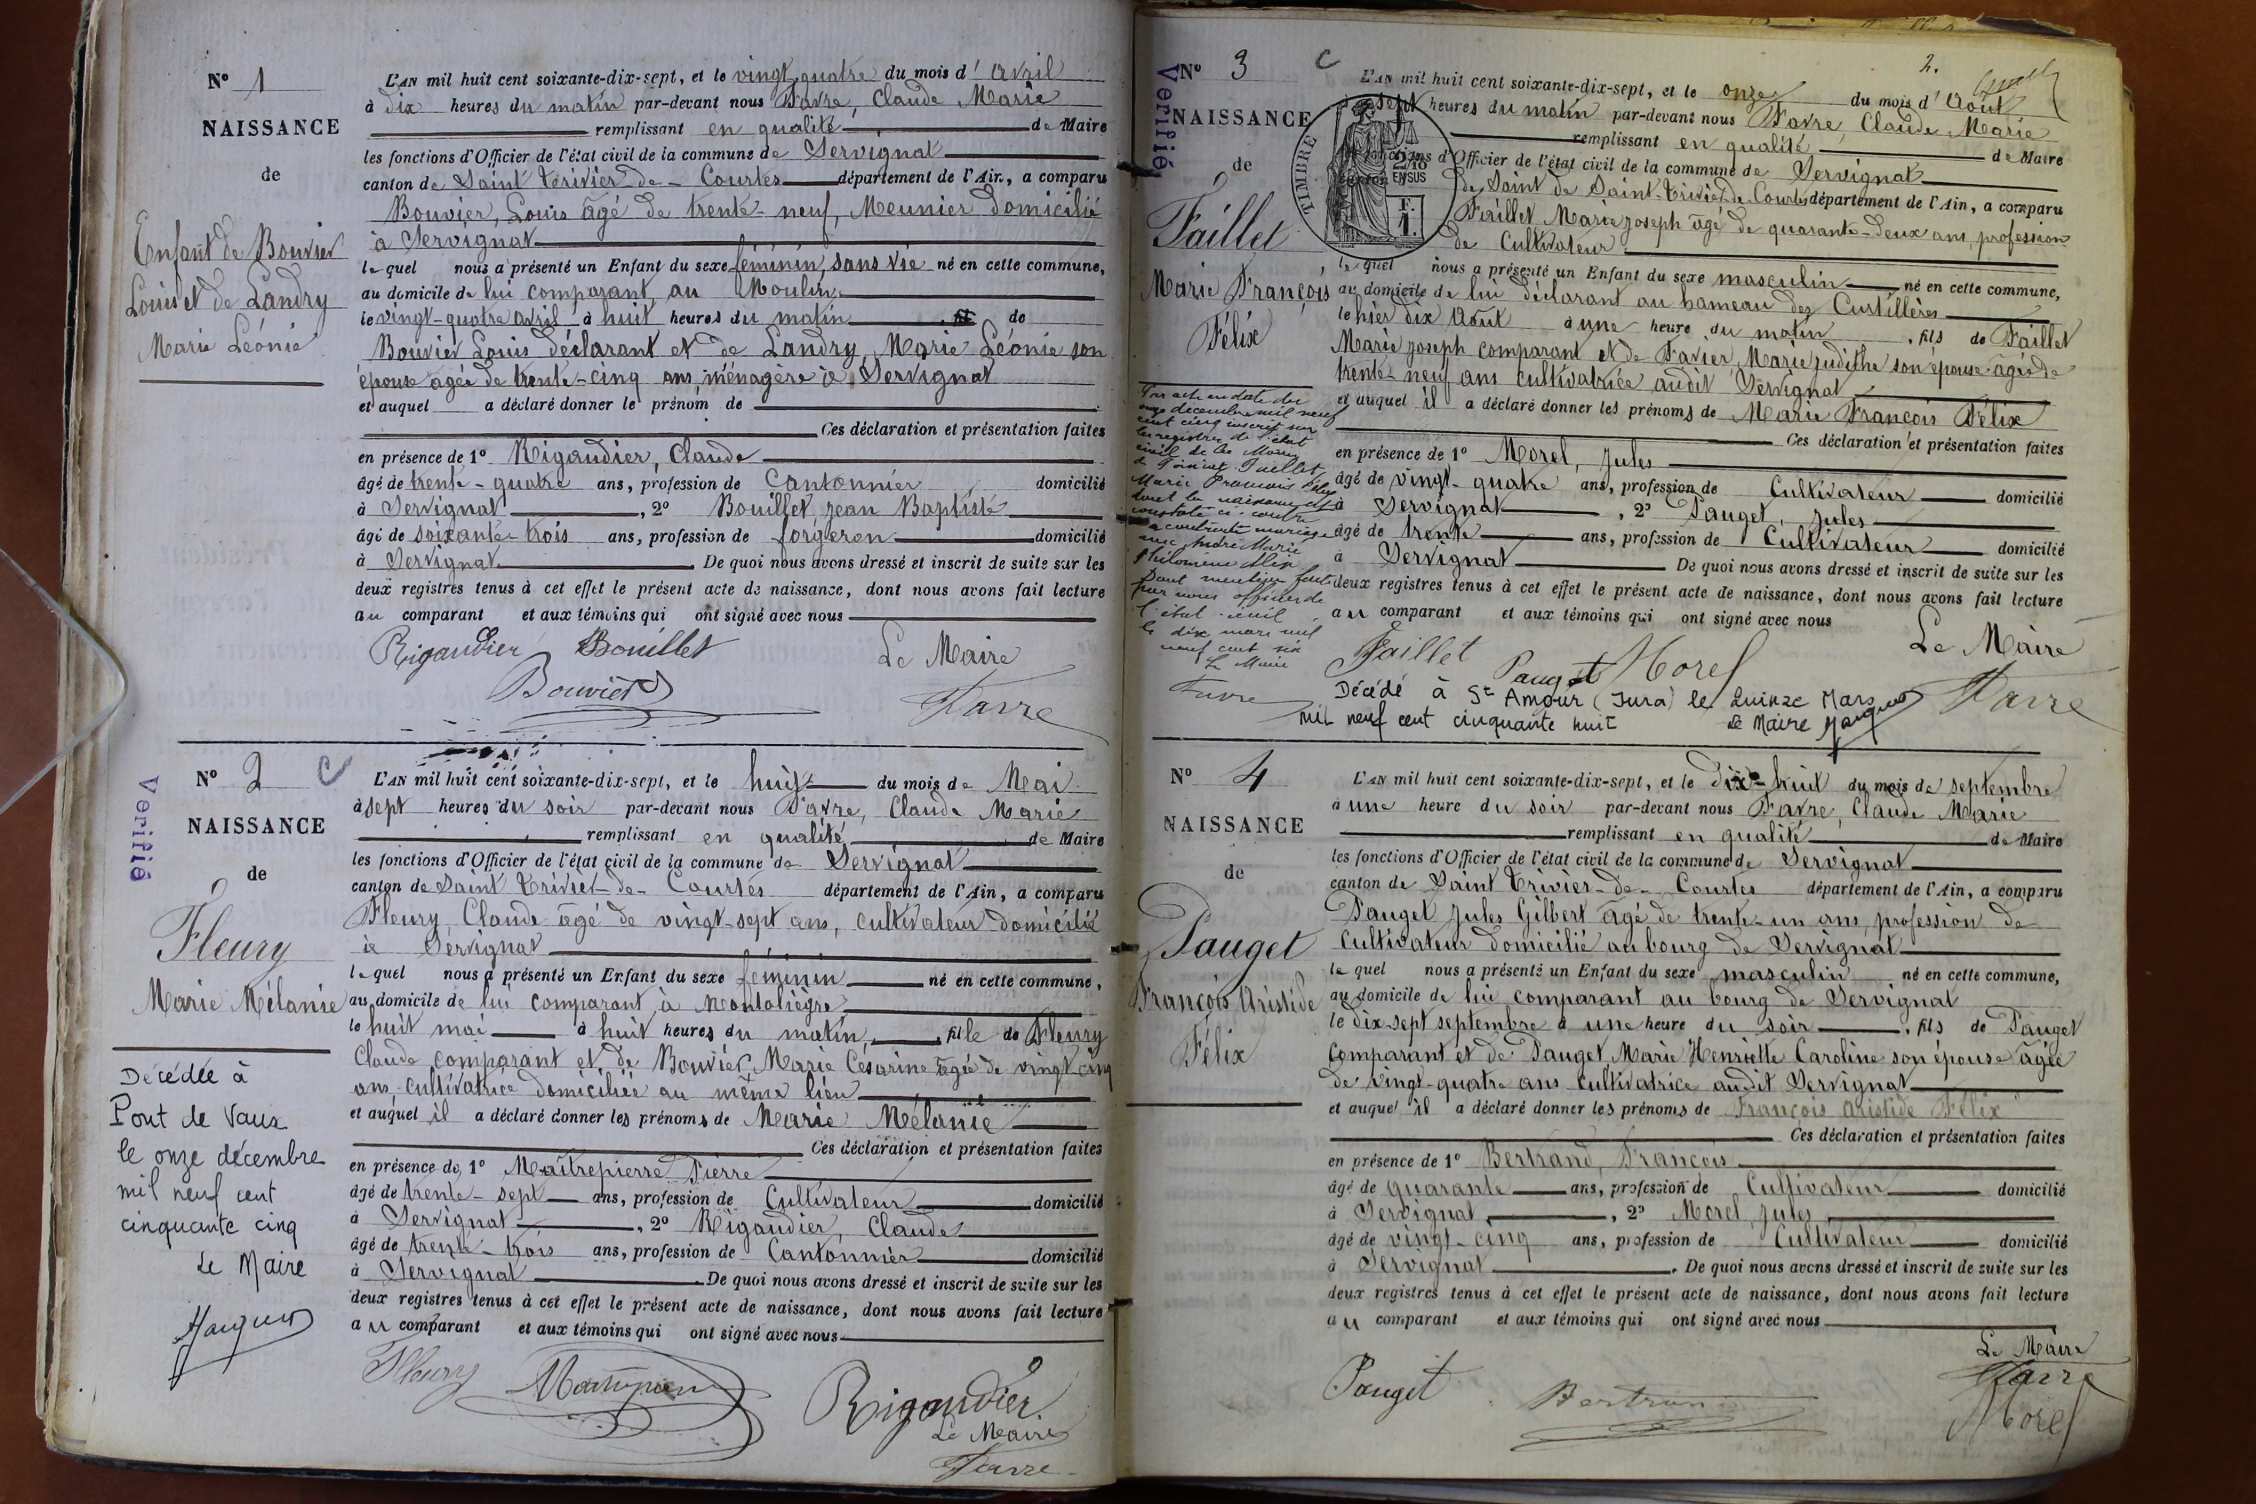 N° 1
NAISSANCE
de
Enfant de Bouvier
Louis et de Landry
Marie Léonie
L'AN mil huit cent soixante-dix-sept, et le vingt quatre du mois d'Avril
à dix heures du matin par-devant nous Favre, Claude Marie
remplissant en qualité de Maire
les fonctions d'Officier de l'état civil de la commune de Servignat
canton de Saint Trivier-de-Courtes département de l'Ain, a comparu
Bouvier, Louis âgé de trente-neuf, Meunier domicilié
à Servignat
le quel nous a présenté un Enfant du sexe féminin, sans vie né en cette commune,
au domicile de lui comparant, au Moulin
le vingt-quatre avril à huit heures du matin de
Bouvier Louis déclarant et de Landry, Marie Léonie son
épouse agée de trente-cinq ans, ménagère à Servignat
et auquel a déclaré donner le prénom de
Ces déclaration et présentation faites
en présence de 1° Rigaudier, Claude
âgé de trente-quatre ans, profession de Cantonnier domicilié
à Servignat, 2° Bouillet, Jean Baptiste
âgé de soixante-trois ans, profession de forgeron domicilié
à Servignat. De quoi nous avons dressé et inscrit de suite sur les
deux registres tenus à cet effet le présent acte de naissance, dont nous avons fait lecture
au comparant et aux témoins qui ont signé avec nous
Rigaudier Bouillet Le Maire
Bouvier Favre
Verifié
N° 2 C
NAISSANCE
de
Fleury
Marie Mélanie
Décédée à
Pont de Vaux
le onze décembre
mil neuf cent
cinquante cinq
Le Maire
L'AN mil huit cent soixante-dix-sept, et le huit du mois de Mai
à sept heures du soir par-devant nous Favre, Claude Marie
remplissant en qualité de Maire
les fonctions d'Officier de l'état civil de la commune de Servignat
canton de Saint Trivier-de-Courtes département de l'Ain, a comparu
Fleury, Claude âgé de vingt-sept ans, cultivateur domicilié
à Servignat
le quel nous a présenté un Enfant du sexe féminin né en cette commune,
au domicile de lui comparant, à Montaliègre
le huit mai à huit heures du matin, fille de Fleury
Claude comparant et de Bouvier Marie Césarine agée de vingt-cinq
ans, cultivatrice domiciliée au même lieu
et auquel il a déclaré donner les prénoms de Marie Mélanie
Ces déclaration et présentation faites
en présence de 1° Maitrepierre Pierre
âgé de trente-sept ans, profession de Cultivateur domicilié
à Servignat, 2° Rigaudier, Claude
âgé de trente-trois ans, profession de Cantonnier domicilié
à Servignat. De quoi nous avons dressé et inscrit de suite sur les
deux registres tenus à cet effet le présent acte de naissance, dont nous avons fait lecture
au comparant et aux témoins qui ont signé avec nous
Fleury Rigaudier
Le Maire
Favre
2.
Verifié
N° 3 C
NAISSANCE
de
Faillet
Marie François
Félix
Par acte en date du
onze décembre mil neuf
cent cinq inscrit sur
les registres de l'état
civil de
Faillet
Marie François Félix
dont la naissance est
constatée ci-contre
a contracté mariage
avec André Marie
Philomène Alix
Dont mention faite
par nous officier de
l'état civil
le dix mars mil
neuf cent six
Le Maire
Favre
TIMBRE
2/10
EN SUS
F.
1.
L'AN mil huit cent soixante-dix-sept, et le onze du mois d'Aout
à sept heures du matin par-devant nous Favre, Claude Marie
remplissant en qualité de Maire
fonctions d'Officier de l'état civil de la commune de Servignat
de Saint de Saint-Trivier-de-Courtes département de l'Ain, a comparu
Faillet Marie Joseph âgé de quarante-deux ans, profession
de Cultivateur
le quel nous a présenté un Enfant du sexe masculin né en cette commune,
au domicile de lui déclarant au hameau des Curtillères
le hier dix Aout à une heure du matin, fils de Faillet
Marie Joseph comparant et de Favier, Marie Judithe son épouse âgée de
trente-neuf ans cultivatrice audit Servignat
et auquel il a déclaré donner les prénoms de Marie François Félix
Ces déclaration et présentation faites
en présence de 1° Morel, Jules
âgé de vingt-quatre ans, profession de Cultivateur domicilié
à Servignat, 2° Pauget, Jules
âgé de trente ans, profession de Cultivateur domicilié
à Servignat De quoi nous avons dressé et inscrit de suite sur les
deux registres tenus à cet effet le présent acte de naissance, dont nous avons fait lecture
au comparant et aux témoins qui ont signé avec nous
Le Maire
Faillet Pauget Morel
Favre
Décédé à St Amour (Jura) le Quinze Mars
mil neuf cent cinquante huit Le Maire
N° 4
NAISSANCE
de
Pauget
François Aristide
Félix
L'AN mil huit cent soixante-dix-sept, et le dix-huit du mois de septembre
à une heure du soir par-devant nous Favre, Claude Marie
remplissant en qualité de Maire
les fonctions d'Officier de l'état civil de la commune de Servignat
canton de Saint Trivier-de-Courtes département de l'Ain, a comparu
Pauget Jules Gilbert âgé de trente-un ans, profession de
Cultivateur domicilié au bourg de Servignat
le quel nous a présenté un Enfant du sexe masculin né en cette commune,
au domicile de lui comparant au bourg de Servignat
le dix-sept septembre à une heure du soir, fils de Pauget
comparant et de Pauget Marie Henriette Caroline son épouse âgée
de vingt-quatre ans cultivatrice audit Servignat
et auquel il a déclaré donner les prénoms de François Aristide Félix
Ces déclaration et présentation faites
en présence de 1° Bertrand, François
âgé de quarante ans, profession de Cultivateur domicilié
à Servignat, 2° Morel, Jules
âgé de vingt-cinq ans, profession de Cultivateur domicilié
à Servignat. De quoi nous avons dressé et inscrit de suite sur les
deux registres tenus à cet effet le présent acte de naissance, dont nous avons fait lecture
au comparant et aux témoins qui ont signé avec nous
Le Maire
Pauget Bertrand Favre
Morel